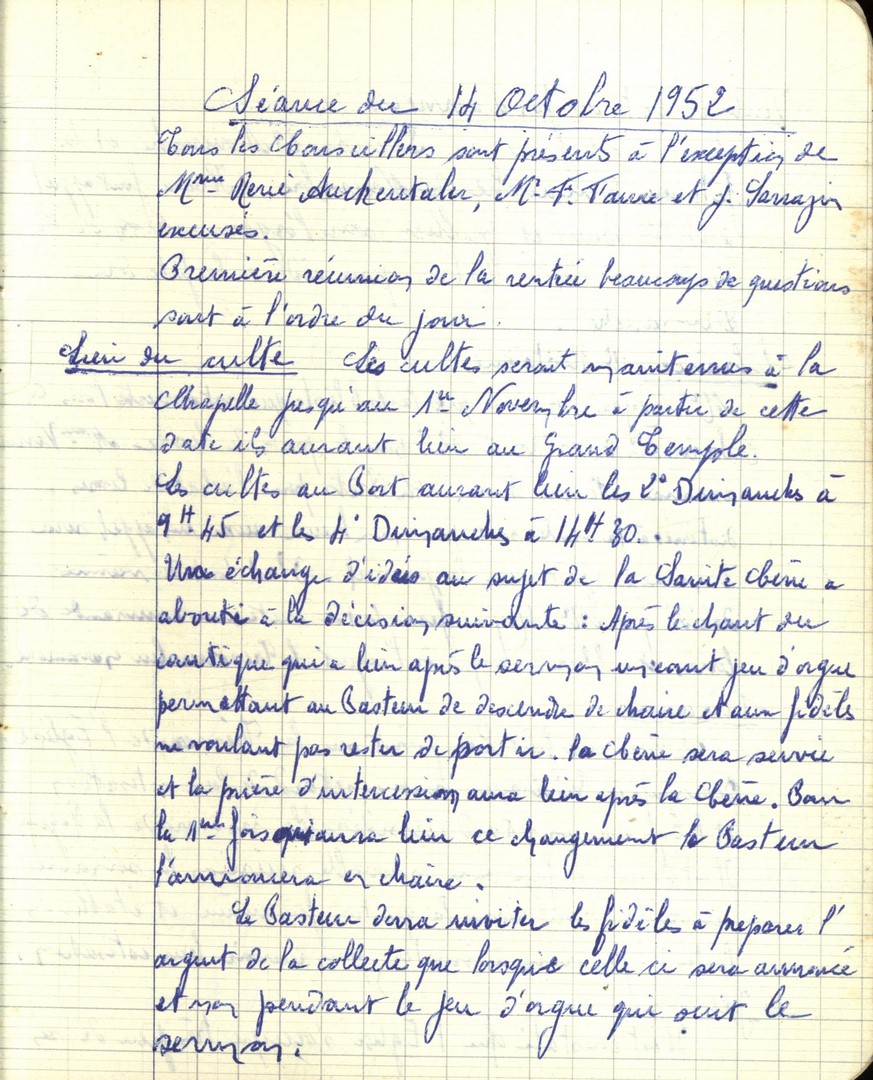 Séance du 14 Octobre 1952
Tous les Conseillers sont présents à l'exception de
Mme René Auchentaler, Mr F. Faure et J. Sarrazin
excusés.
Première réunion de la rentrée beaucoup de questions
sont à l'ordre du jour.
Lieu du culte Les cultes seront maintenus à la
Chapelle jusqu'au 1er Novembre à partir de cette
date ils auront lieu au Grand Temple.
Les cultes au Port auront lieu les 2e Dimanches à
9H45 et les 4e Dimanches à 14H30.
Un échange d'idées au sujet de la Sainte Cène a
abouti à la décision suivante : Après le chant du
cantique qui a lieu après le sermon un court jeu d'orgue
permettant au Pasteur de descendre de chaire et aux fidèls
ne voulant pas rester de partir. la Cène sera servie
et la prière d'intercession aura lieu après la Cène. Pour
la 1ere fois qui aura lieu ce changement le Pasteur
l'annoncera en chaire.
Le Pasteur devra inviter les fidèles à préparer l'
argent de la collecte que lorsque celle ci sera annoncé
et non pendant le jeu d'orgue qui suit le
sermon.